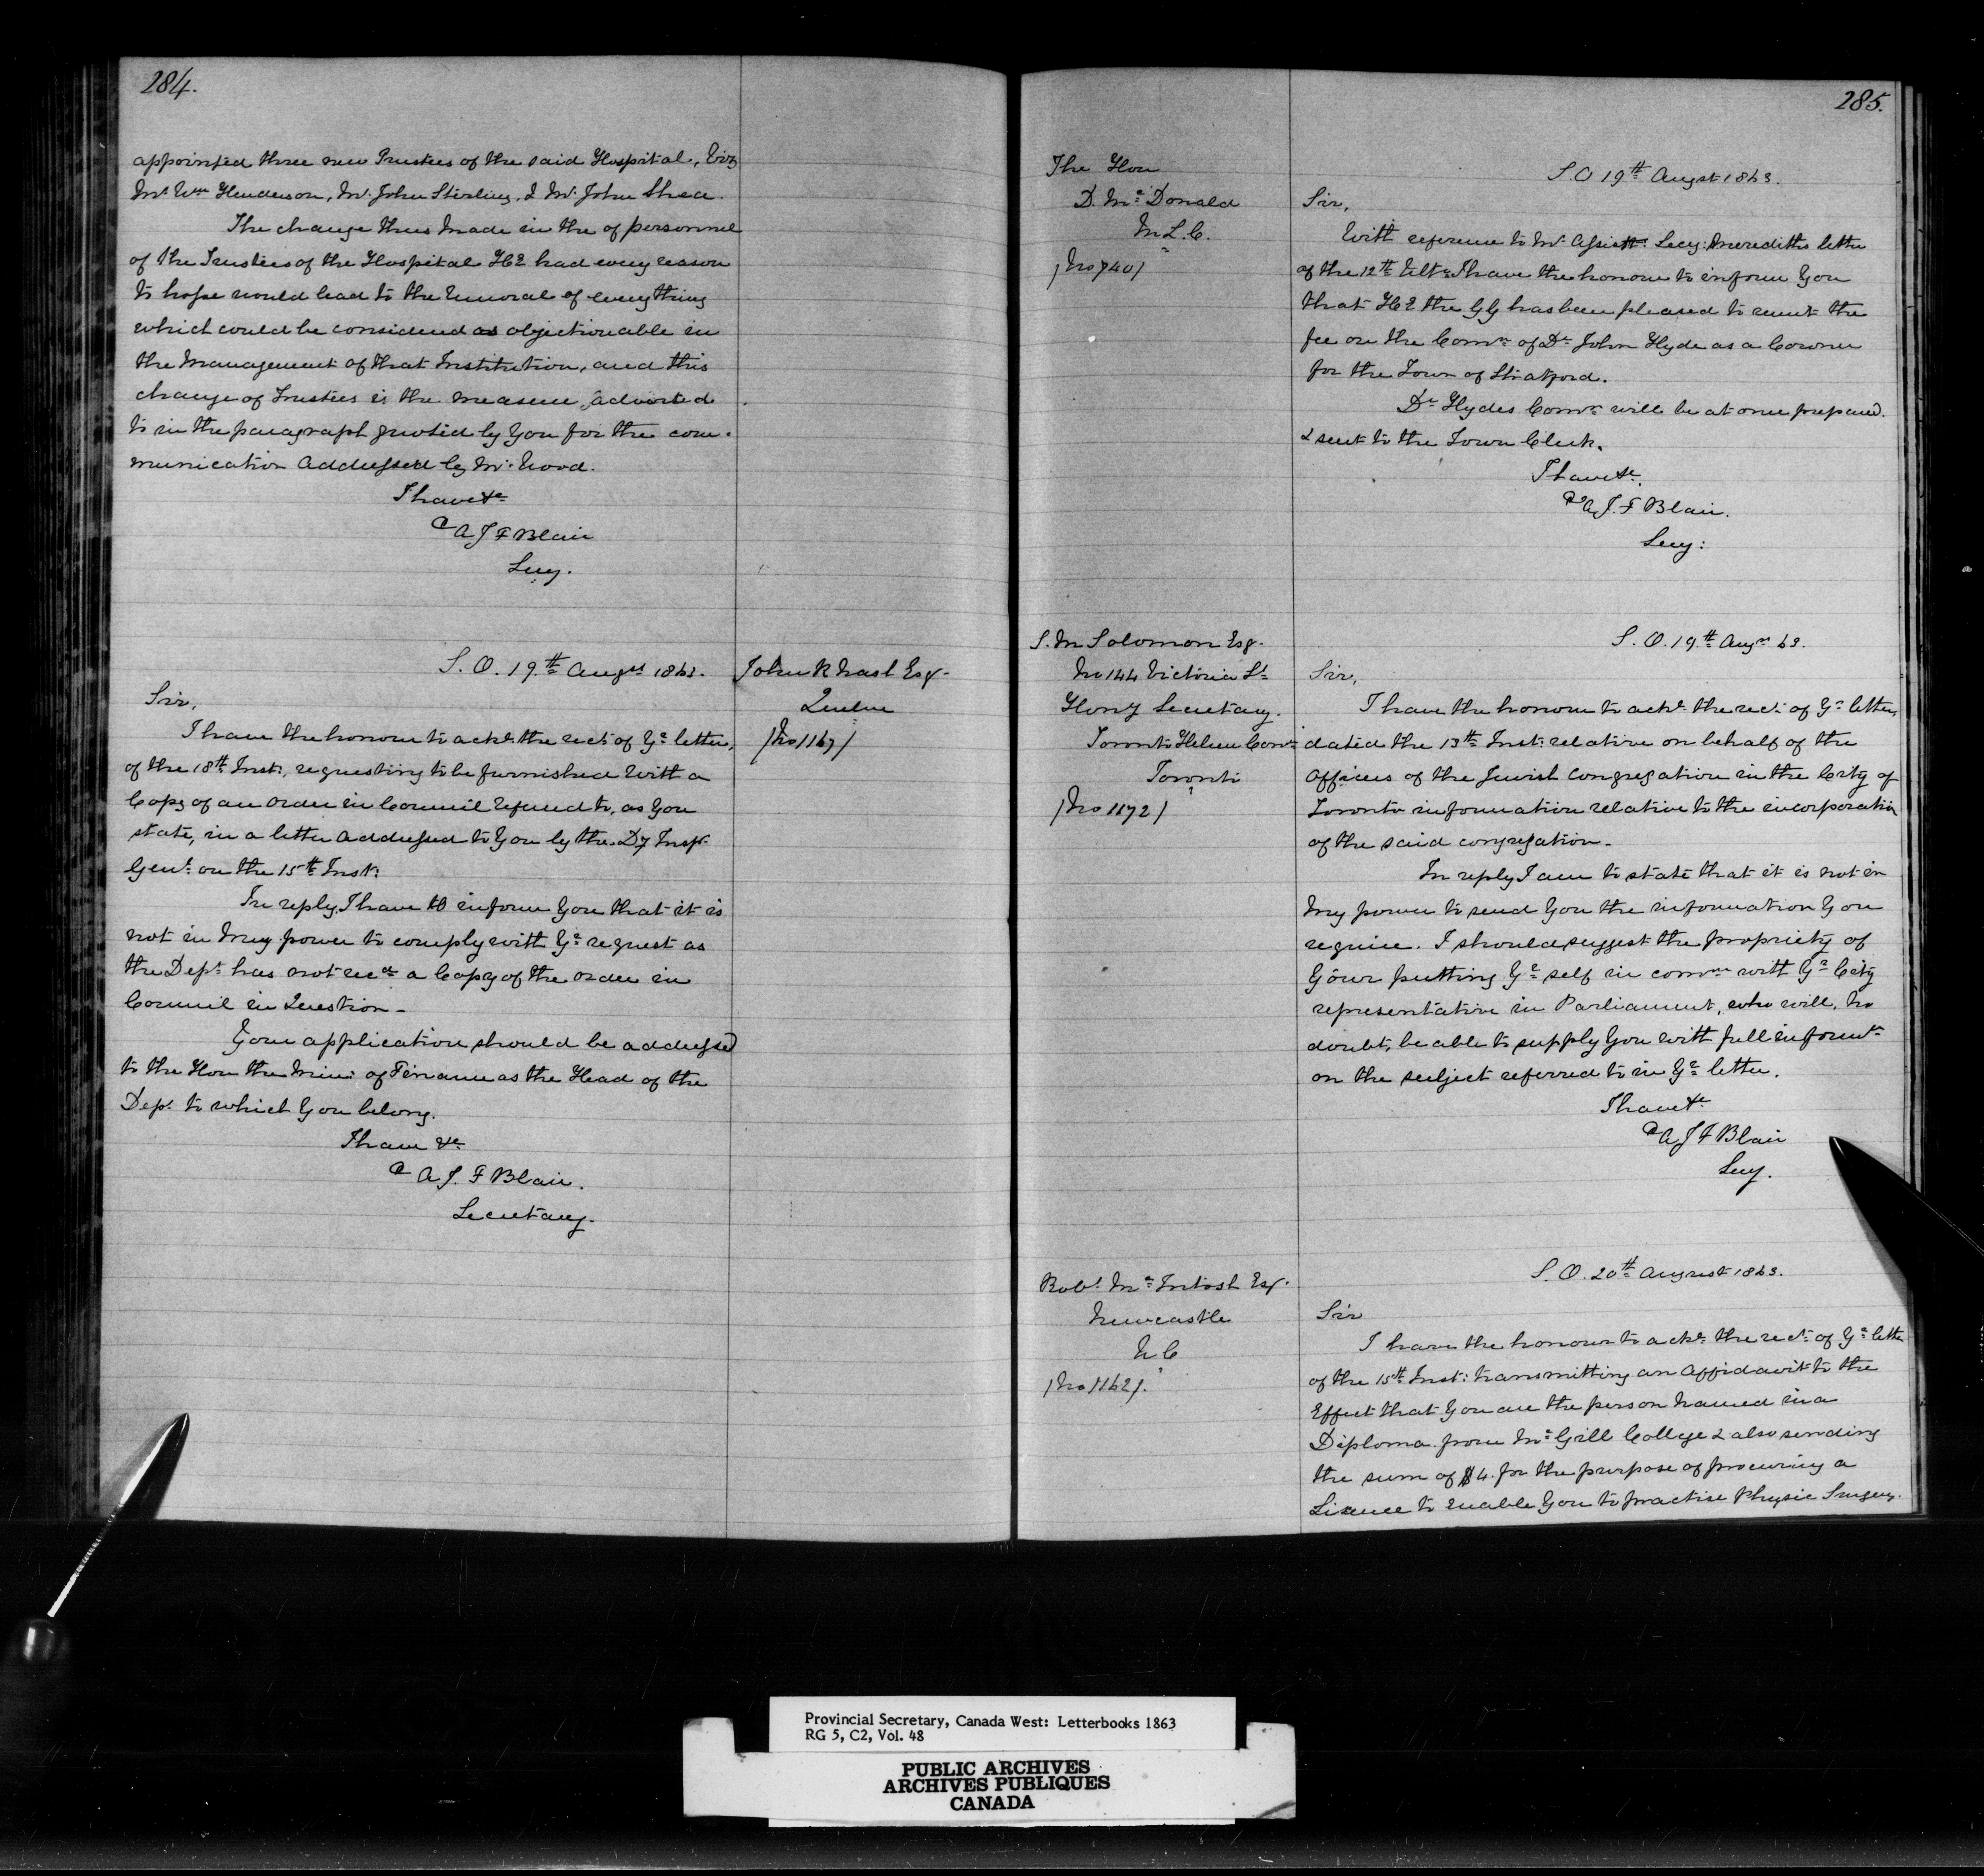 284.
appointed three new Trustees of the said Hospital, Viz
Mr. Wm Henderson, Mr. John Stirling, & Mr. John Shea.
The change thus made in the of personnel
of the Trustees of the Hospital HE had every reason
to hope would lead to the removal of everything
which could be considered as objectionable in
the Management of that Institution, and this
change of Trustees is the measure, adverted
to in the paragraph quoted by You for the com-
munication addressed by Mr. Wood.
I have &c
A J F Blair
Secy.
S. O. 19th Augst 1863.
John R Nash Esqr.
Quebec
/No 1167/
Sir,
I have the honour to ackn. the rect. of Yr letter,
of the 18th Inst:, requesting to be furnished with a
Copy of an order in Council referred to, as You
state, in a letter addressed to You by the Dy Inspr.
Genl: on the 15th Inst:
In reply, I have to inform You that it is
not in my power to comply with Yr request as
the Dept has not recd a Copy of the order in
Council in Question -
Your application should be addressed
to the Hon the Min: of Finance as the Head of the
Dept. to which You belong.
I have &c
A J. F Blair.
Secretary.
285.
The Hon
D. Mc Donald
M.L.C.
/No 740/
S.O 19th Augst 1863.
Sir,
With reference to Mr. Assistt: Secy: Merediths letter
of the 12th Ulto: I have the honour to inform You
that HE the GG has been pleased to remit the
fee on the Comn of Dr John Hyde as a Coroner
for the Town of Stratford.
Dr Hydes Comn will be at once prepared.
& sent to the Town Clerk.
I have &c.
A, J. F Blair.
Secy:
S. M Solomon Esqr.
No 144 Victoria St
Hony Secretary.
Toronto Hebrew Conn
Toronto
/No 1172/
S. O. 19th Aug 63.
Sir,
I have the honour to ackn. the rect. of Yr letter,
dated the 13th Inst: relative on behalf of the
officers of the Jewish congregation in the City of
Toronto information relative to the incorporation
of the said congregation -
In reply I am to state that it is not in
my power to send You the information You
require. I should suggest the propriety of
Your putting Yr self in comn with Yr City
representative in Parliament, who will, no
doubt, be able to supply You with full informn
on the subject referred to in Yr letter.
I have &c
A J F Blair
Secy.
Robt. Mc Intosh Esqr.
Newcastle
U C
/No 1162/.
S. O. 20th August 1863.
Sir
I have the honour to ackn. the rect. of Yr letter
of the 15th Inst: transmitting an Affidavit to the
Effect that You are the person named in a
Diploma from Mc Gill College & also sending
the sum of $4. for the purpose of procuring a
Licence to enable You to practise Physic Surgery.
Provincial Secretary, Canada West: Letterbooks 1863
RG 5, C2, Vol. 48
PUBLIC ARCHIVES
ARCHIVES PUBLIQUES
CANADA